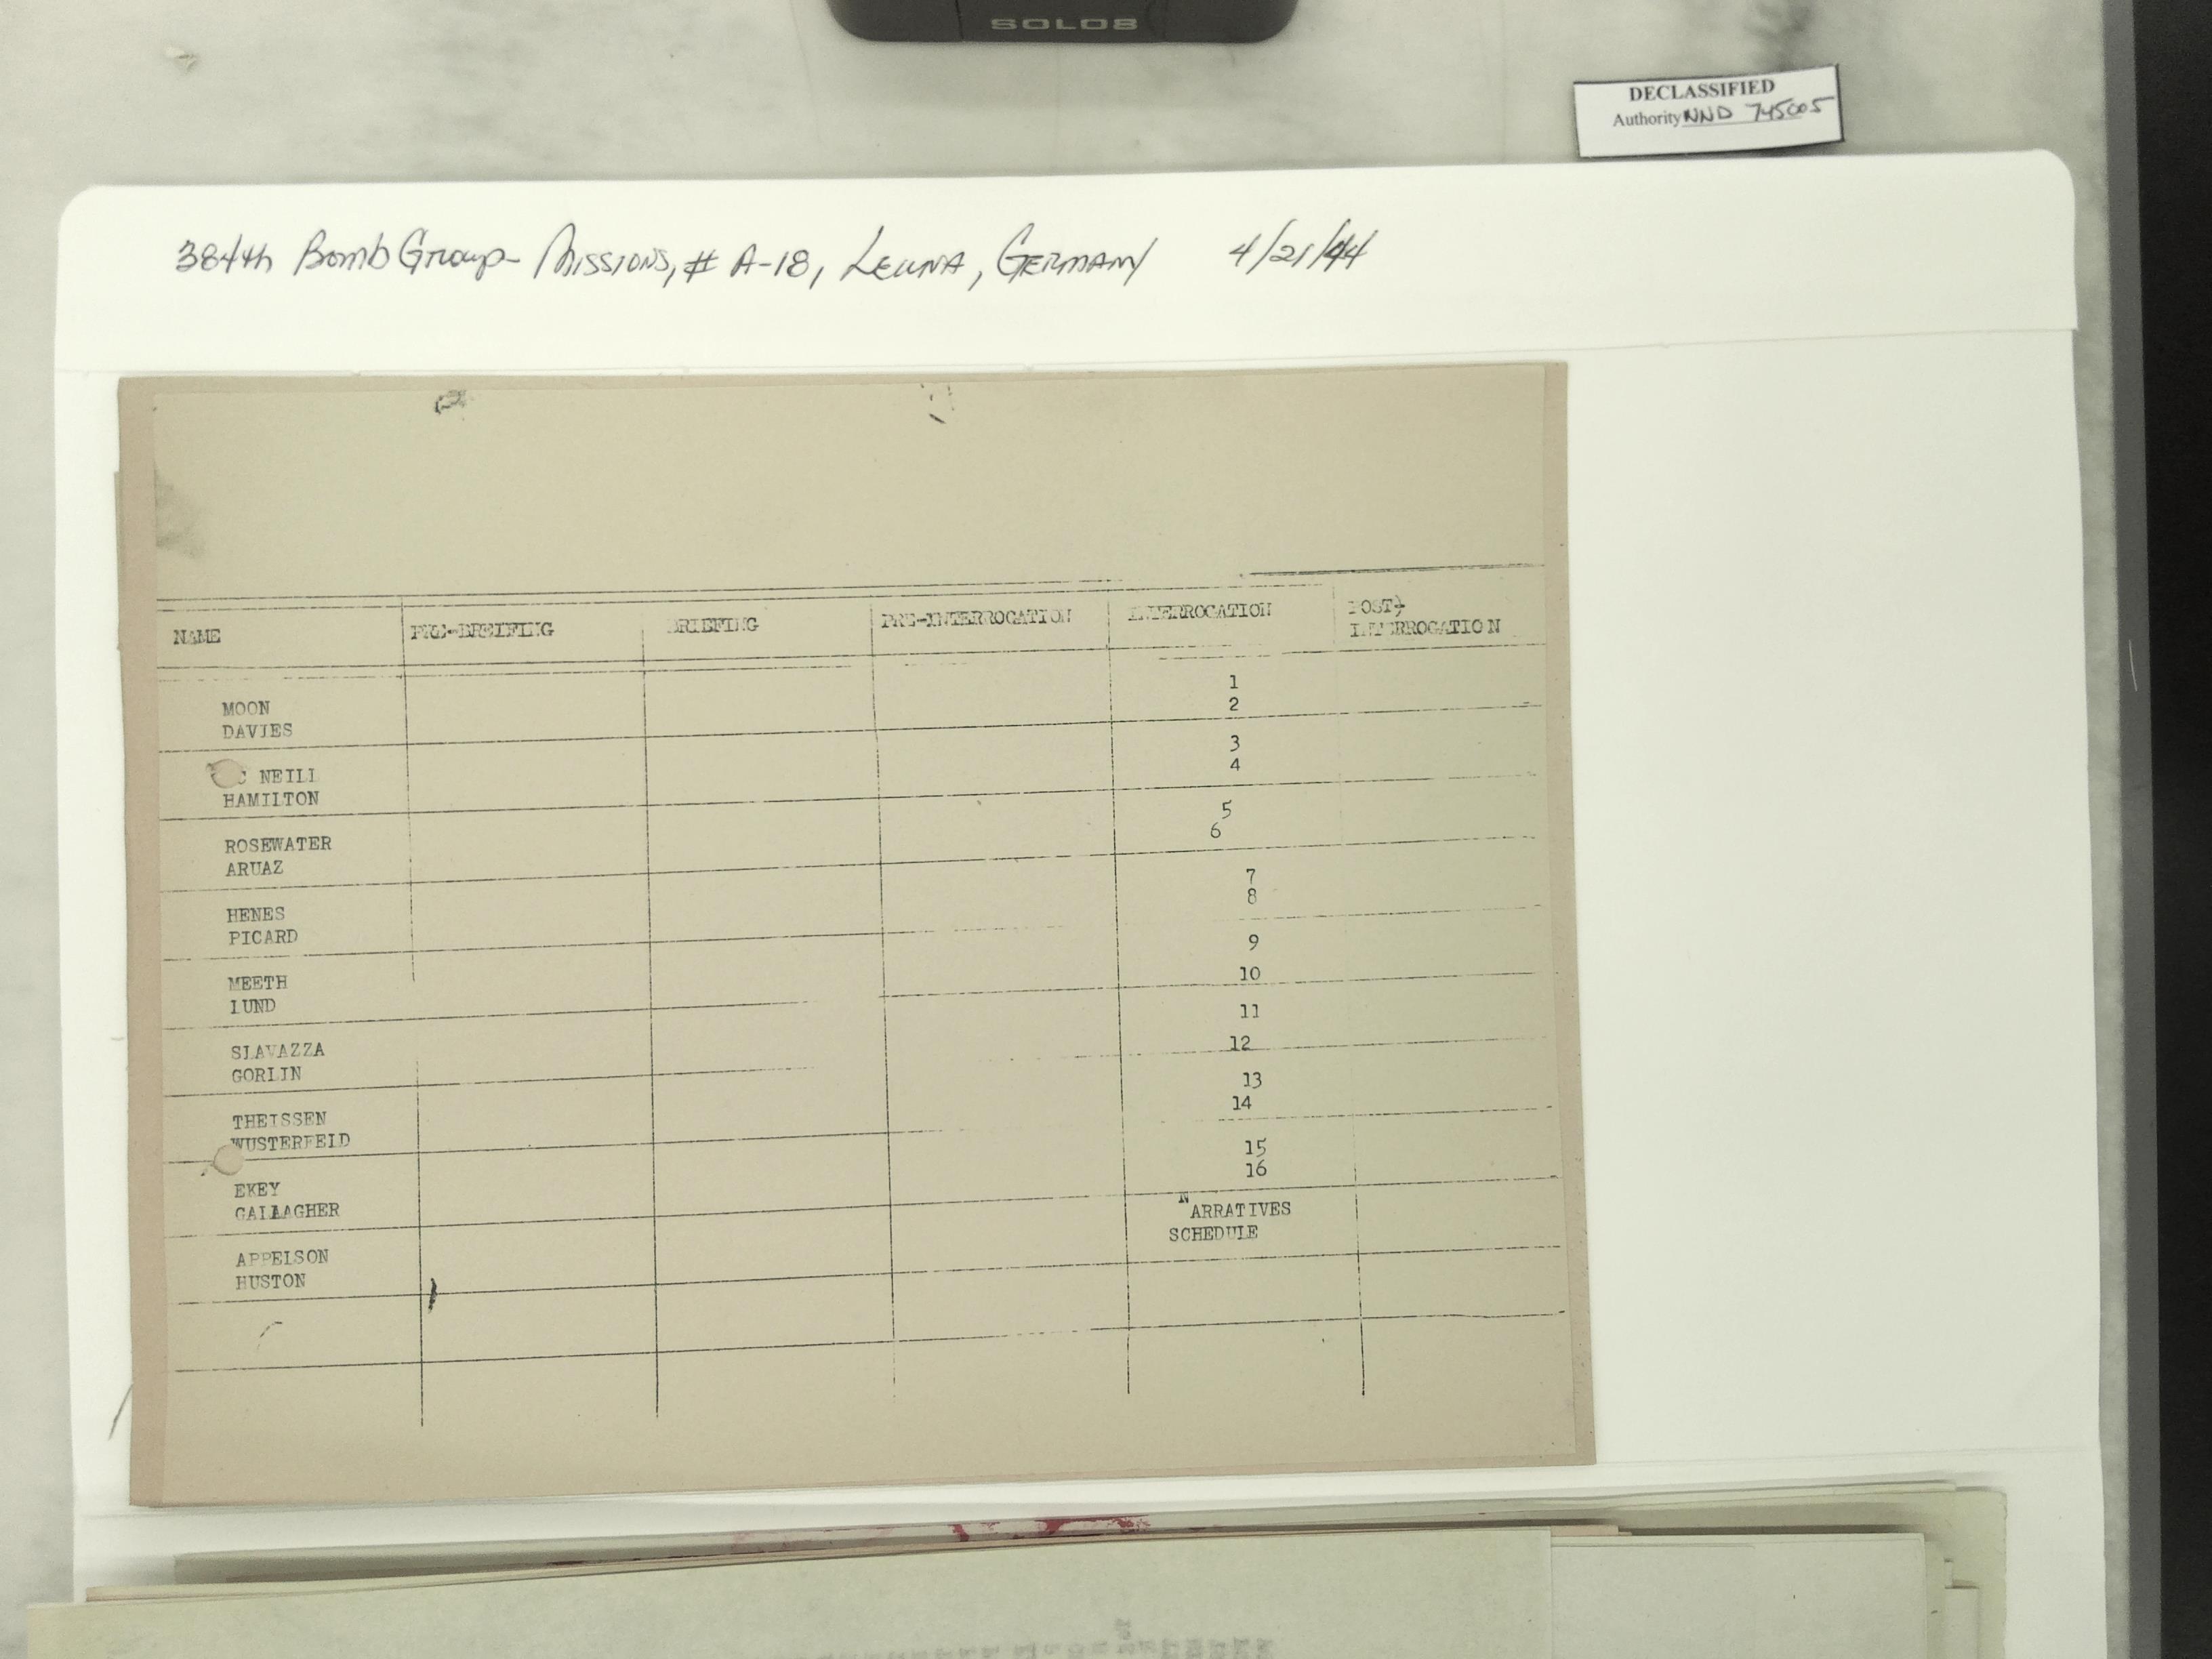 SOLO8
DECLASSIFIED
Authority NND 745005
384th Bomb Group- Missions, # A-18, Leuna, Germany 4/21/44
NAME PRE-BREIFING BRIEFING PRE-INTERROGATION INTERROGATION POST-
INTERROGATION
MOON 1
DAVIES 2
C NEILL 3
HAMILTON 4
ROSEWATER 5
ARUAZ 6
HENES 7
PICARD 8
MEETH 9
LUND 10
SLAVAZZA 11
GORLIN 12
THEISSEN 13
WUSTERFELD 14
EKEY 15
GALLAGHER 16
APPELSON NARRATIVES
HUSTON SCHEDULE